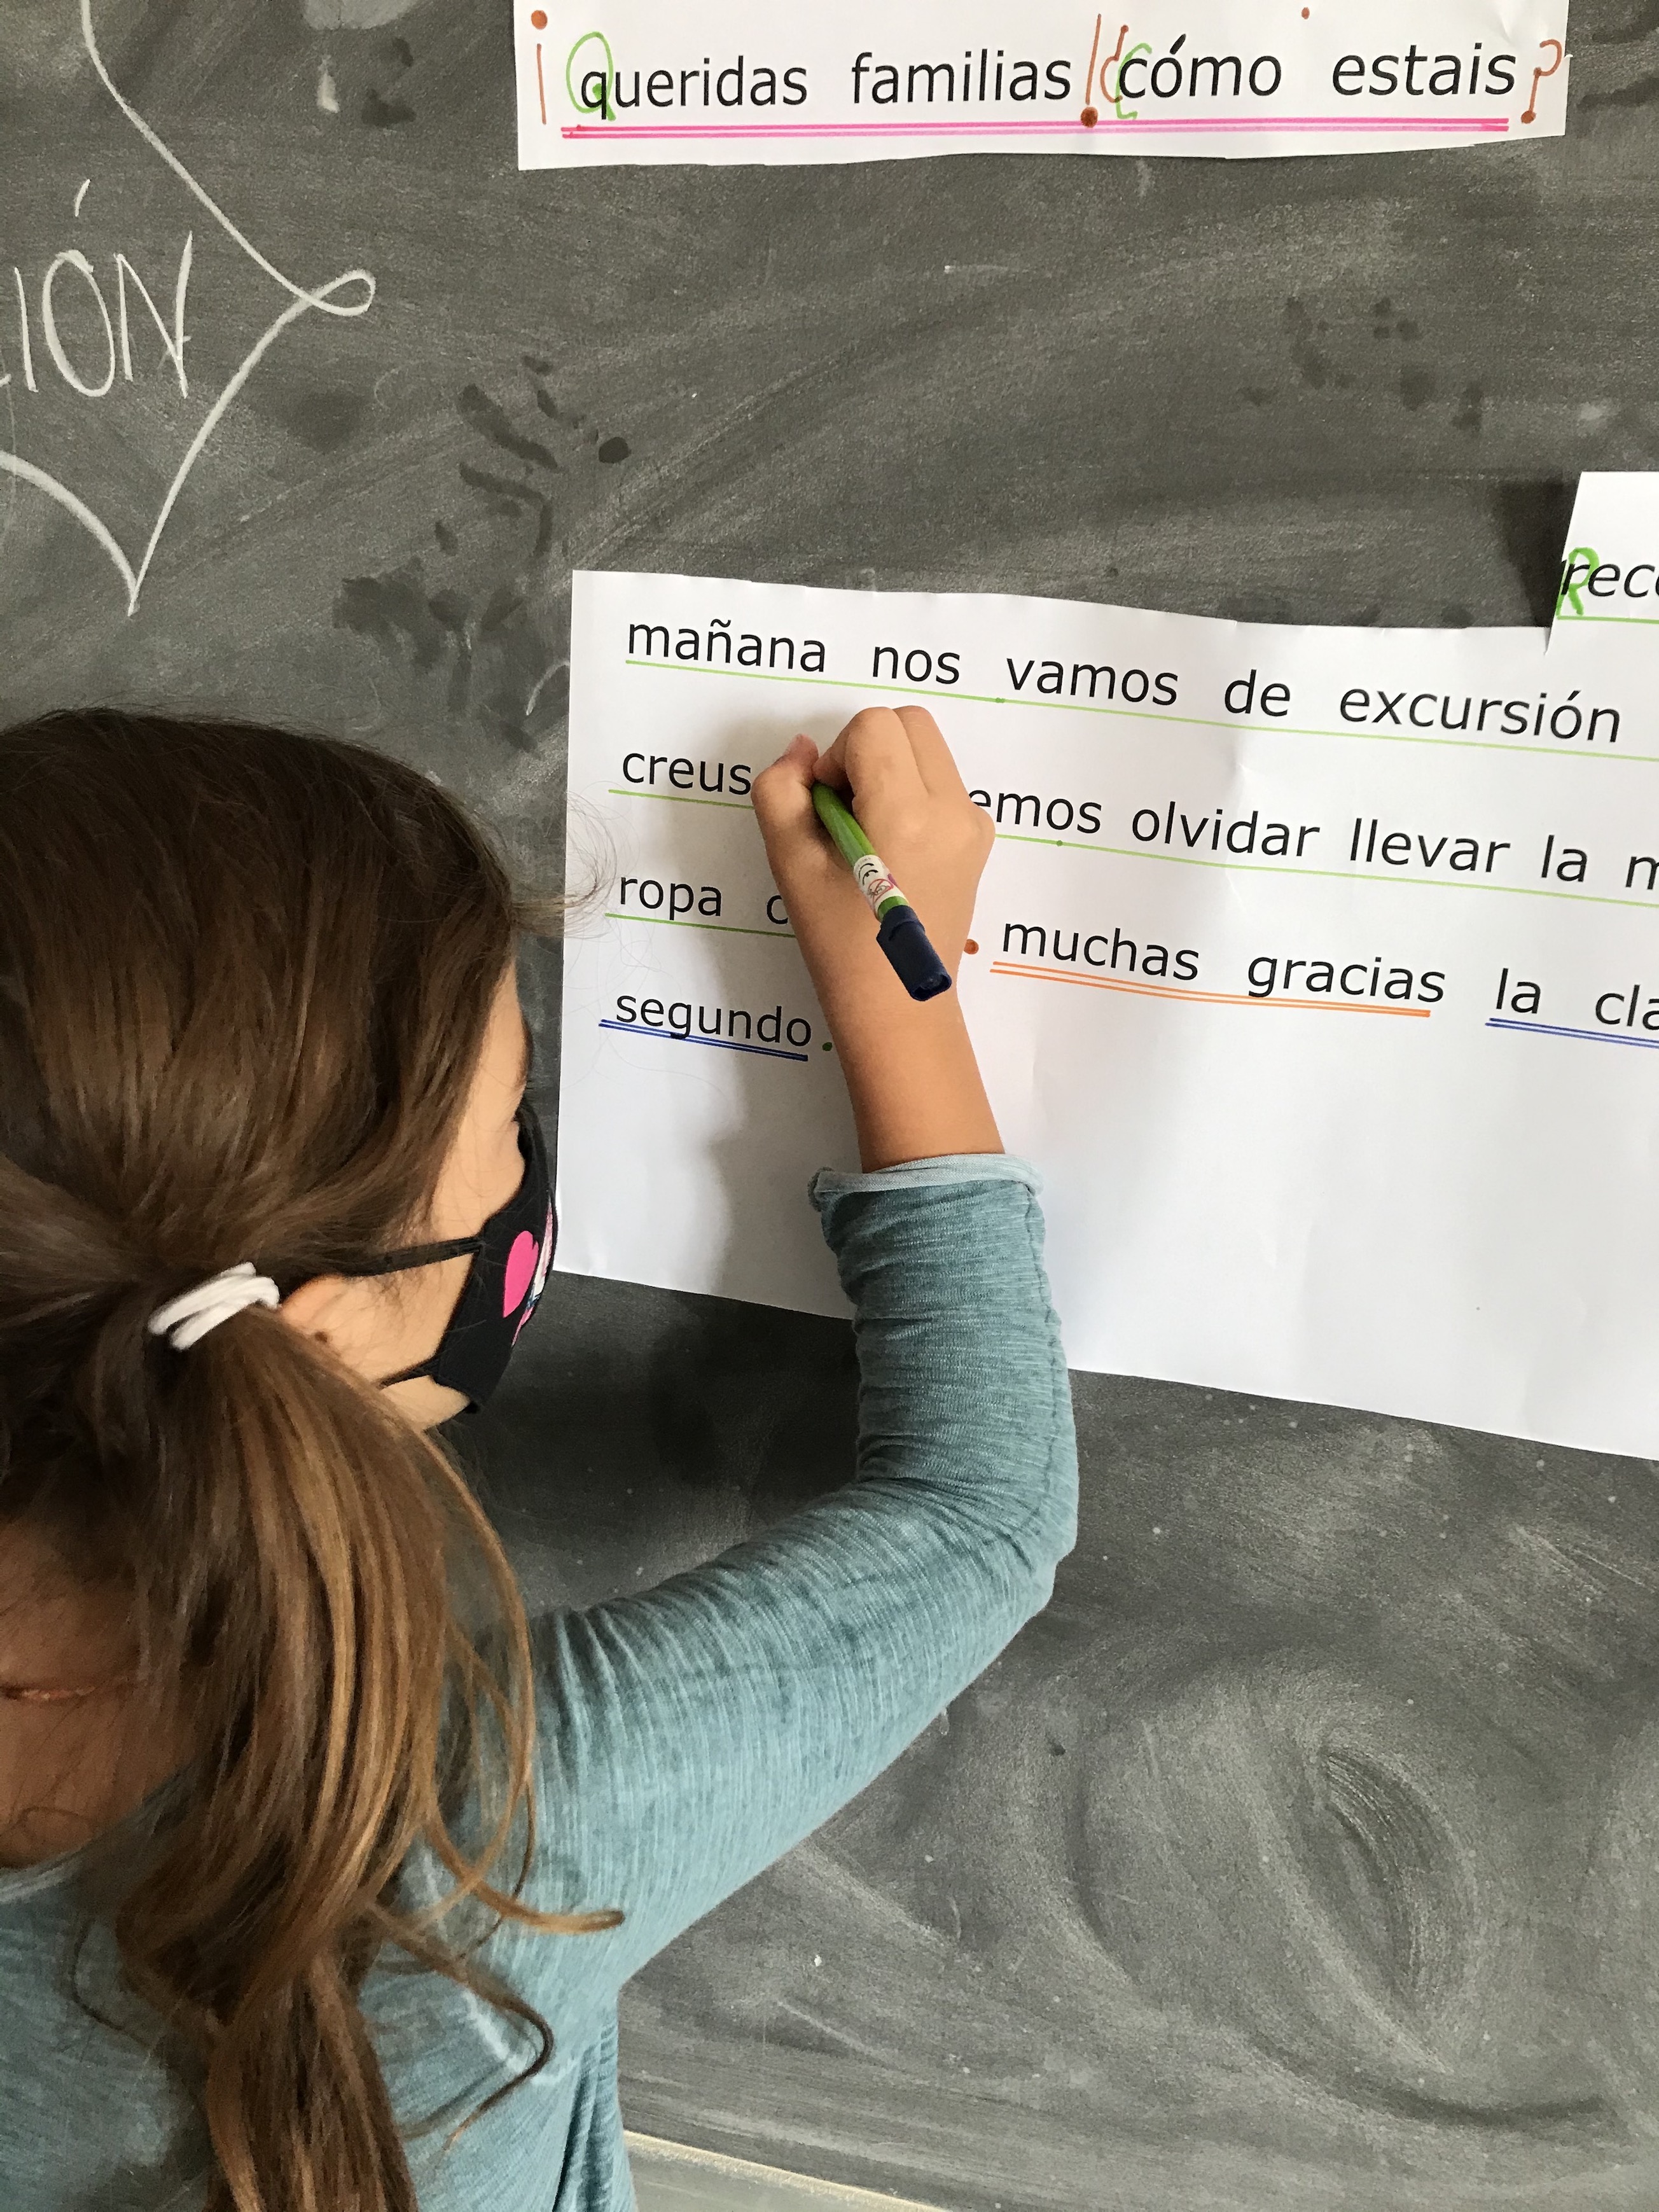 ¡Queridas familias! ¿Cómo estais?
IÓN
mañana nos vamos de excursión
creus emos olvidar llevar la
ropa . muchas gracias la
segundo.